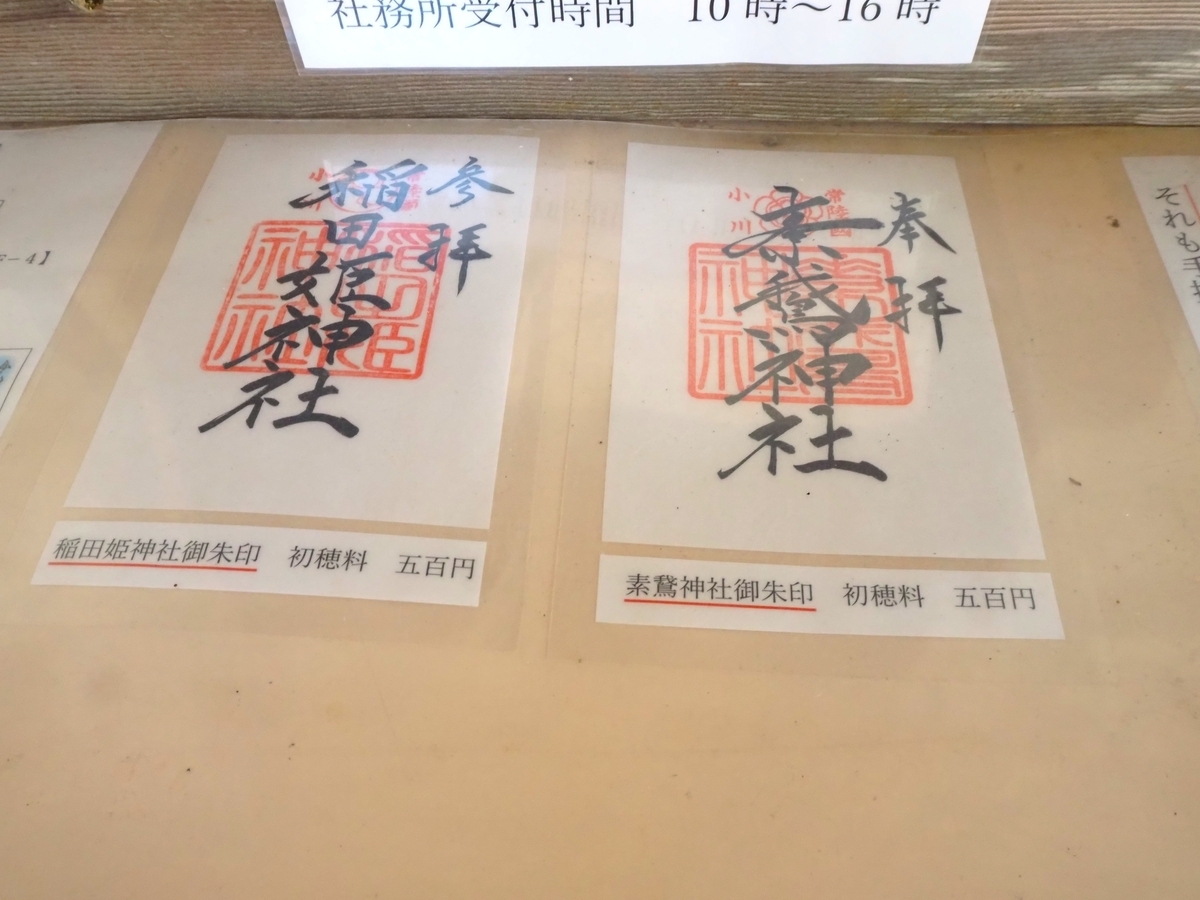 社務所受付時間　10時～16時
-4】
参拝
稲田姫神社
稲田姫神社御朱印　初穂料　五百円
奉拝
常陸國
小川
素鵞神社
素鵞神社御朱印　初穂料　五百円
それも